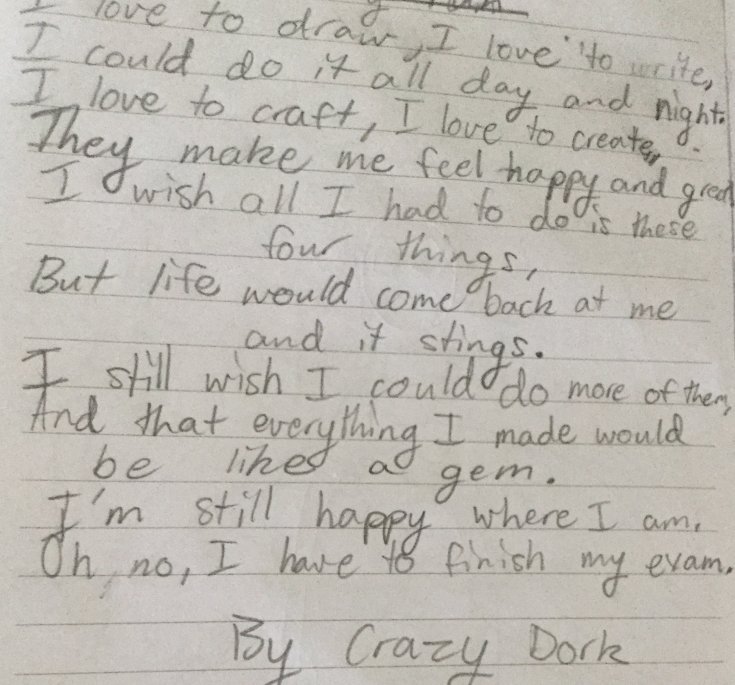 I love to draw, I love to write,
I could do it all day and night.
I love to craft, I love to create,
They make me feel happy and great
I wish all I had to do is these
four things,
But life would come back at me
and it stings.
I still wish I could do more of them,
And that everything I made would
be liked a gem.
I'm still happy where I am.
Oh, no, I have to finish my exam.
By Crazy Dork